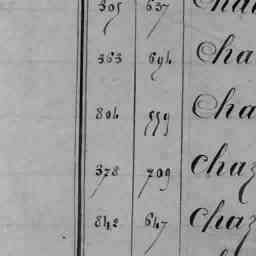 305 637 Cha
363 694 Cha
804 559 Cha
378 709 Chaz
842 647 Chaz